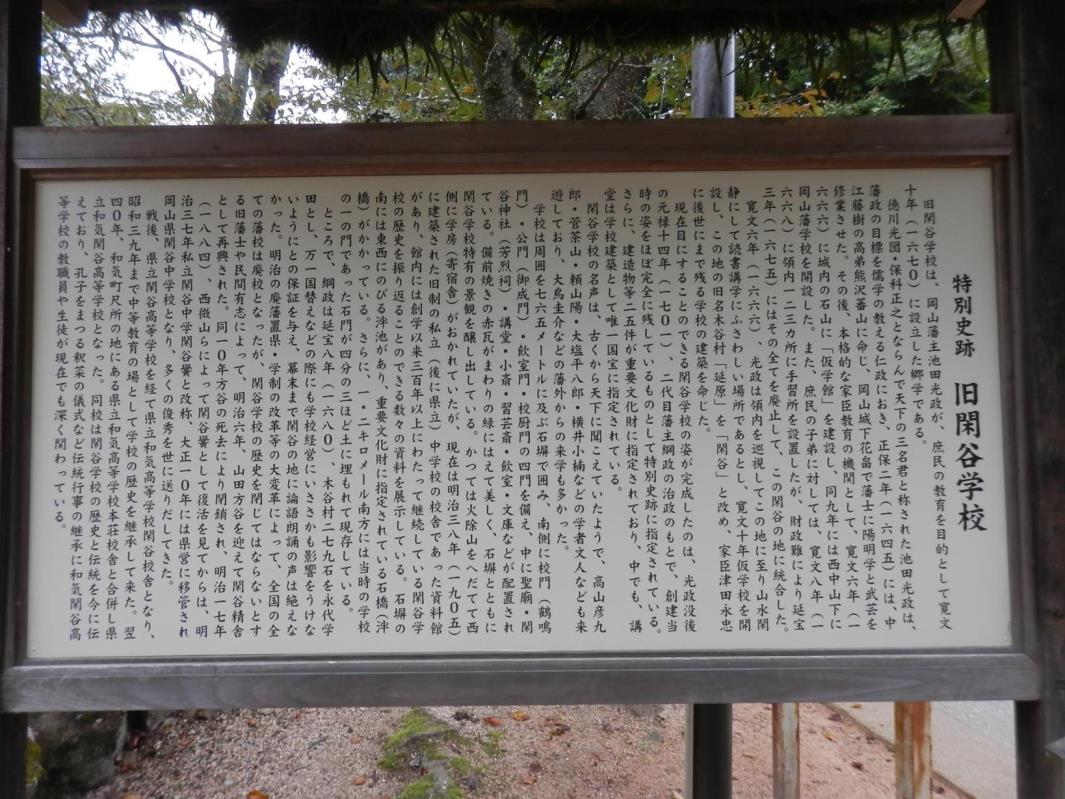 特別史跡　旧閑谷学校
旧閑谷学校は、岡山藩主池田光政が、庶民の教育を目的として寛文
十年（一六七〇）に設立した郷学である。
徳川光圀・保科正之とならんで天下の三名君と称された池田光政は、
藩政の目標を儒学の教える仁政におき、正保二年（一六四五）には、中
江藤樹の高弟熊沢蕃山に命じ、岡山城下花畠で藩士に陽明学と武芸を
修業させた。その後、本格的な家臣教育の機関として、寛文六年（一
六六六）に城内の石山に「仮学館」を建設し、同九年には西中山下に
岡山藩学校を開設した。また、庶民の子弟に対しては、寛文八年（一
六六八）に領内一二三カ所に手習所を設置したが、財政難により延宝
三年（一六七五）にはその全てを廃止して、この閑谷の地に統合した。
寛文六年（一六六六）、光政は領内を巡視してこの地に至り山水閑
静にして読書講学にふさわしい場所であるとし、寛文十年仮学校を開
設し、この地の旧名木谷村「延原」を「閑谷」と改め、家臣津田永忠
に後世にまで残る学校の建築を命じた。
現在目にすることのできる閑谷学校の姿が完成したのは、光政没後
の元禄十四年（一七〇一）、二代目藩主綱政の治政のもとで、創建当
時の姿をほぼ完全に残しているものとして特別史跡に指定されている。
さらに、建造物等二五件が重要文化財に指定されており、中でも、講
堂は学校建築として唯一国宝に指定されている。
閑谷学校の名声は、古くから天下に聞こえていたようで、高山彦九
郎・菅茶山・頼山陽・大塩平八郎・横井小楠などの学者文人なども来
遊しており、大鳥圭介などの藩外からの来学も多かった。
学校は周囲を七六五メートルに及ぶ石塀で囲み、南側に校門（鶴鳴
門）・公門（御成門）・飲室門・校厨門の四門を備え、中に聖廟・閑
谷神社（芳烈祠）・講堂・小斎・習芸斎・飲室・文庫などが配置され
ている。備前焼きの赤瓦がまわりの緑にはえて美しく、石塀とともに
閑谷学校特有の景観を醸し出している。かつては火除山をへだてて西
側に学房（寄宿舎）がおかれていたが、現在は明治三八年（一九〇五）
に建築された旧制の私立（後に県立）中学校の校舎であった資料館
があり、館内には創学以来三百年以上にわたって継続している閑谷学
校の歴史を振り返ることのできる数々の資料を展示している。石塀の
南には東西にのびる泮池があり、重要文化財に指定されている石橋（泮
橋）がかかっている。さらに、一・二キロメール南方には当時の学校
の一の門であった石門が四分の三ほど土に埋もれて現存している。
ところで、綱政は延宝八年（一六八〇）、木谷村二七九石を永代学
田とし、万一国替えなどの際にも学校経営にいささかも影響をうけな
いようにとの保証を与え、幕末まで閑谷の地に論語朗誦の声は絶えな
かった。明治の廃藩置県・学制の改革等の大変革によって、全国の全
ての藩校は廃校となったが、閑谷学校の歴史を閉じてはならないとす
る旧藩士や民間有志によって、明治六年、山田方谷を迎えて閑谷精舎
として再興された。同一〇年方谷の死去により閉鎖され、明治一七年
（一八八四）、西微山らによって閑谷黌として復活を見てからは、明
治三七年私立閑谷中学閑谷黌と改称、大正一〇年には県営に移管され
岡山県閑谷中学校となり、多くの俊秀を世に送りだしてきた。
戦後、県立閑谷高等学校を経て県立和気高等学校閑谷校舎となり、
昭和三九年まで中等教育の場として学校の歴史を継承して来た。翌
四〇年、和気町尺所の地にある県立和気高等学校本荘校舎と合併し県
立和気閑谷高等学校となった。同校は閑谷学校の歴史と伝統を今に伝
えており、孔子をまつる釈菜の儀式など伝統行事の継承に和気閑谷高
等学校の教職員や生徒が現在でも深く関わっている。